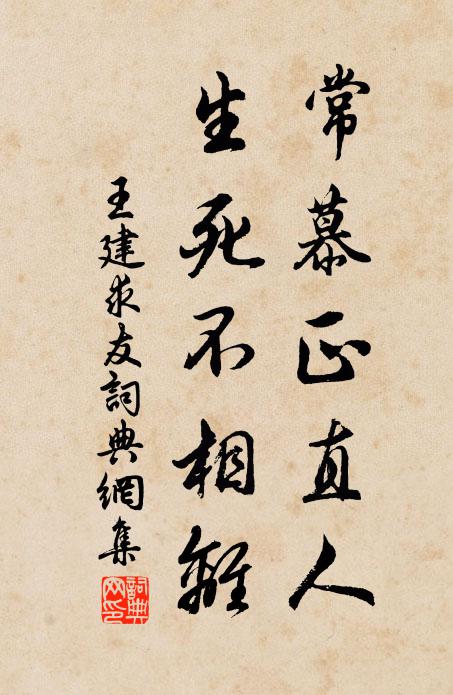 常慕正直人
生死不相離
王建求友詞典網集
詞典網印